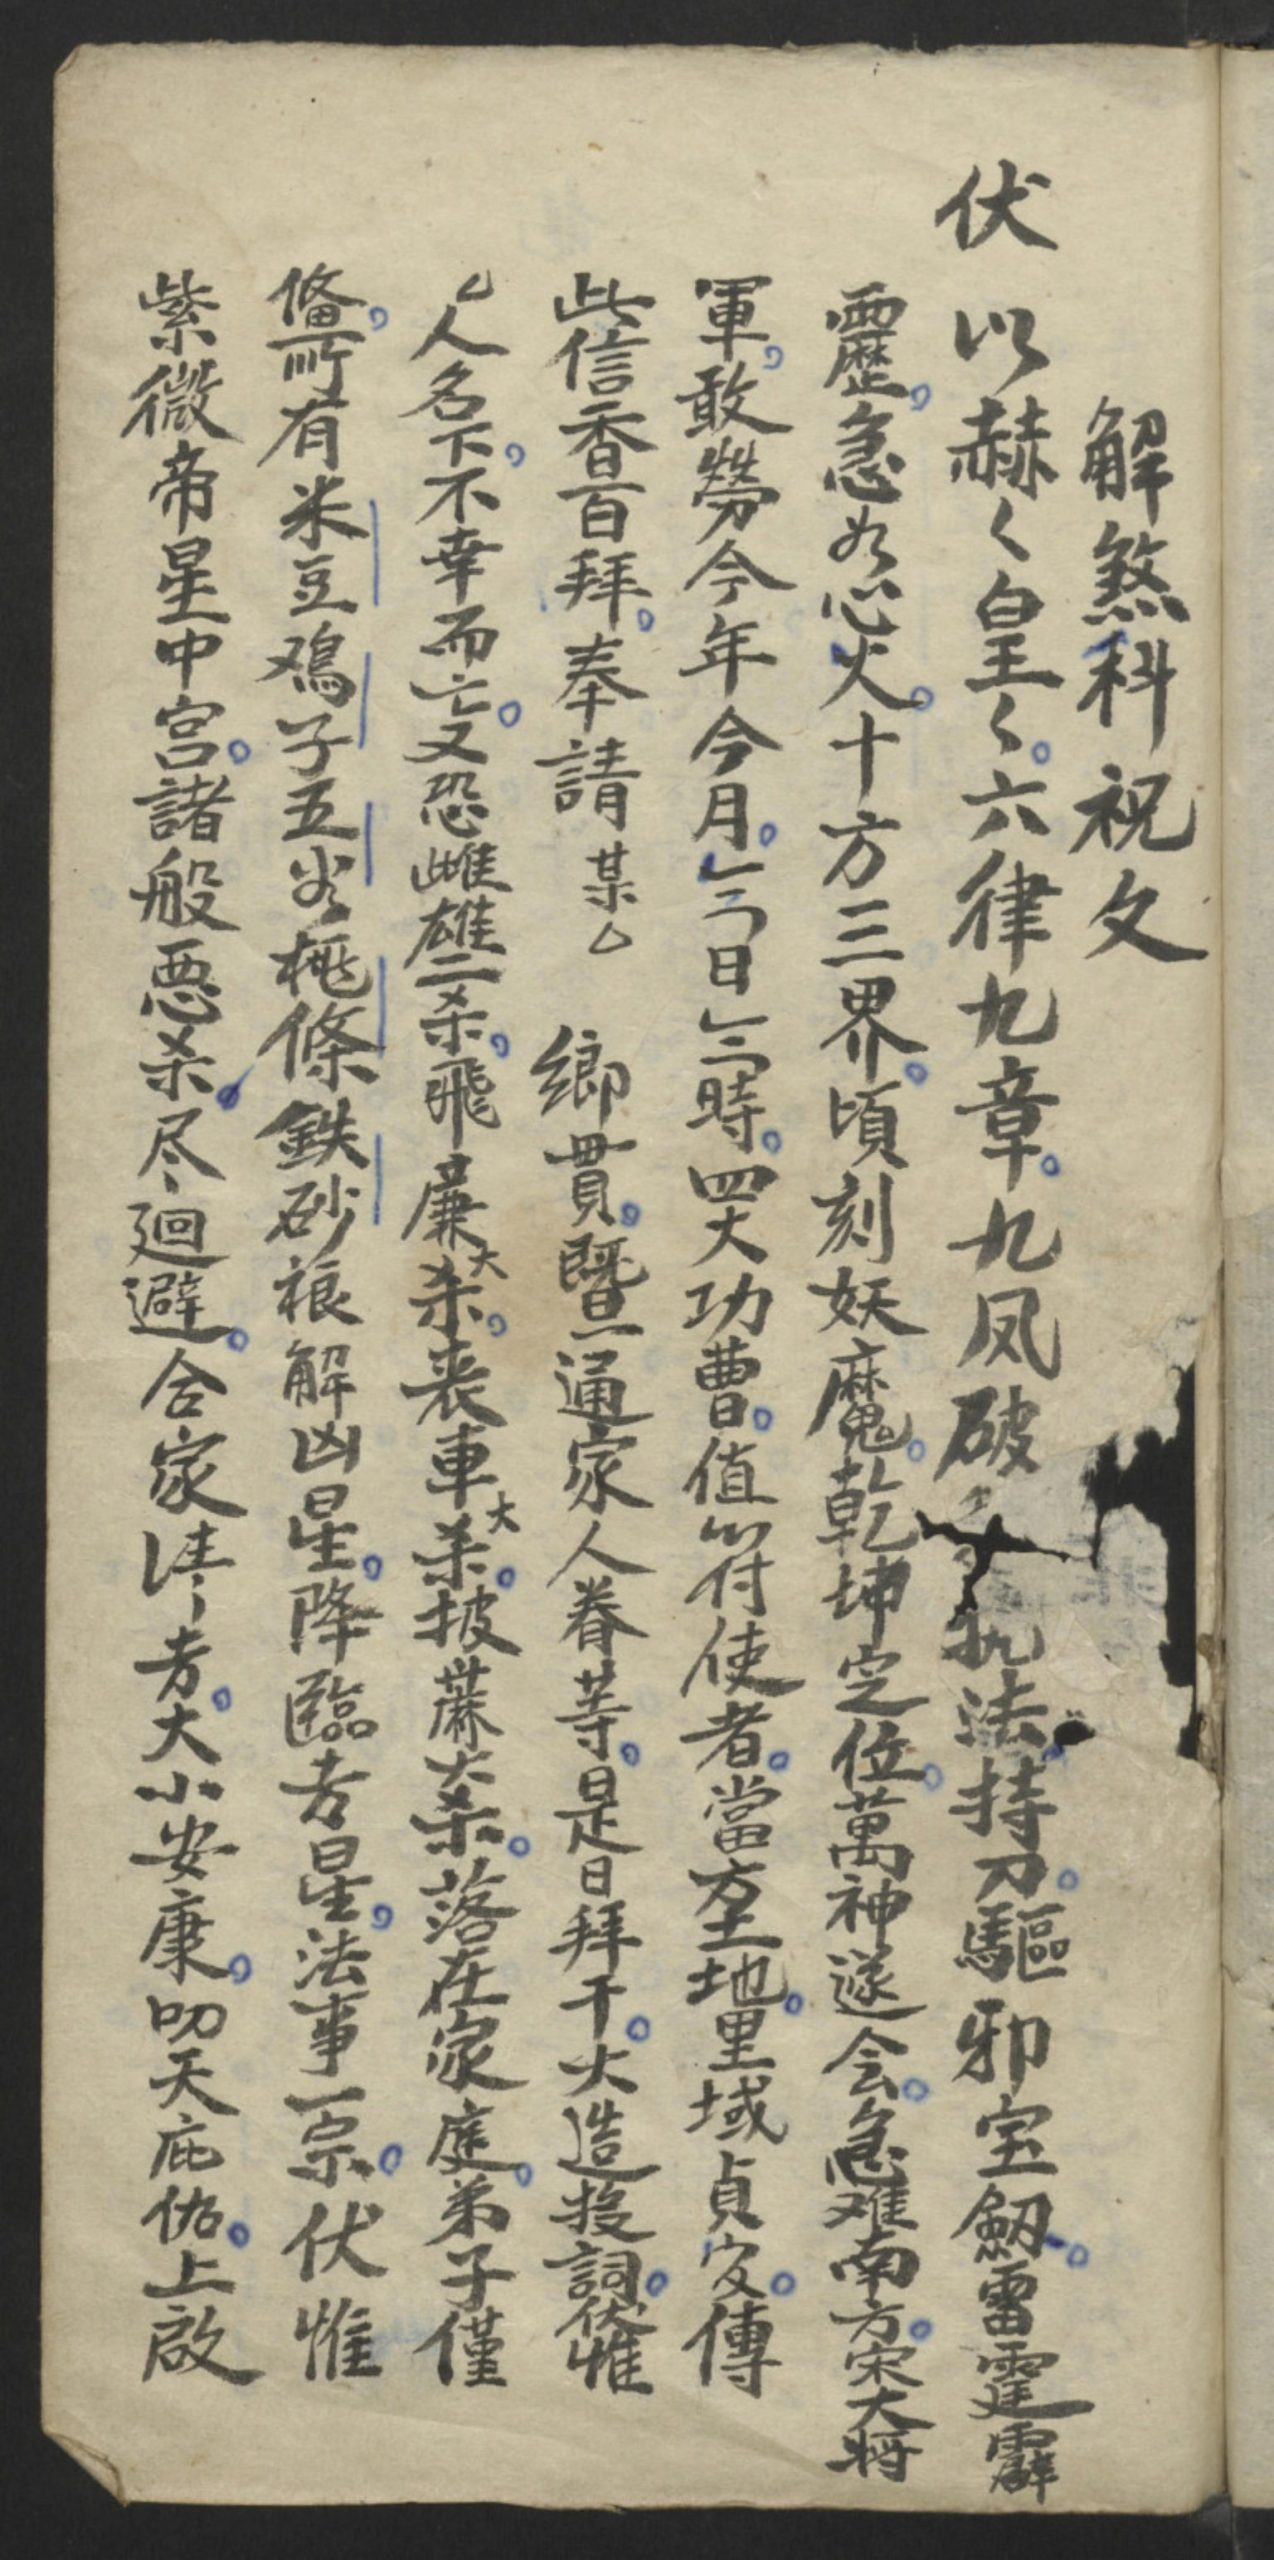 解煞科祝文
伏以赫〻皇〻六律九章九凤破 执法持刀驅邪宝劔雷霆霹
靂急如心火十方三界頃刻妖魔乾坤定位萬神遂会急难南方宋大將
軍敢勞今年今月 日 時四大功曹值符使者當方土地里域貞官傳
此信香百拜奉請某厶 鄉貫暨通家人眷等是日拜干大造投詞伏惟
厶人名下不幸而亡又恐雌雄二杀飛廉大杀丧車大杀披蔴大杀落在家庭弟子僅
俻所有米豆鸡子五谷桃條鉄砂禳解凶星降臨吉星法事一宗伏惟
紫微帝星中宫諸般悪杀尽廻避合家清吉大小安康叨天庇佑上啟